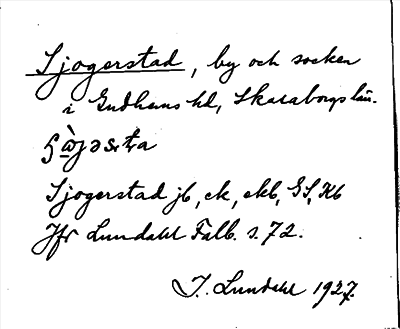 Sjogerstad, by och socken
i Gudhems hd, Skaraborgs län.
Sjogerstad jb, ek, ekb, GS, Kb
Jfr Lundahl Falb. s. 72.
I. Lundahl 1927.